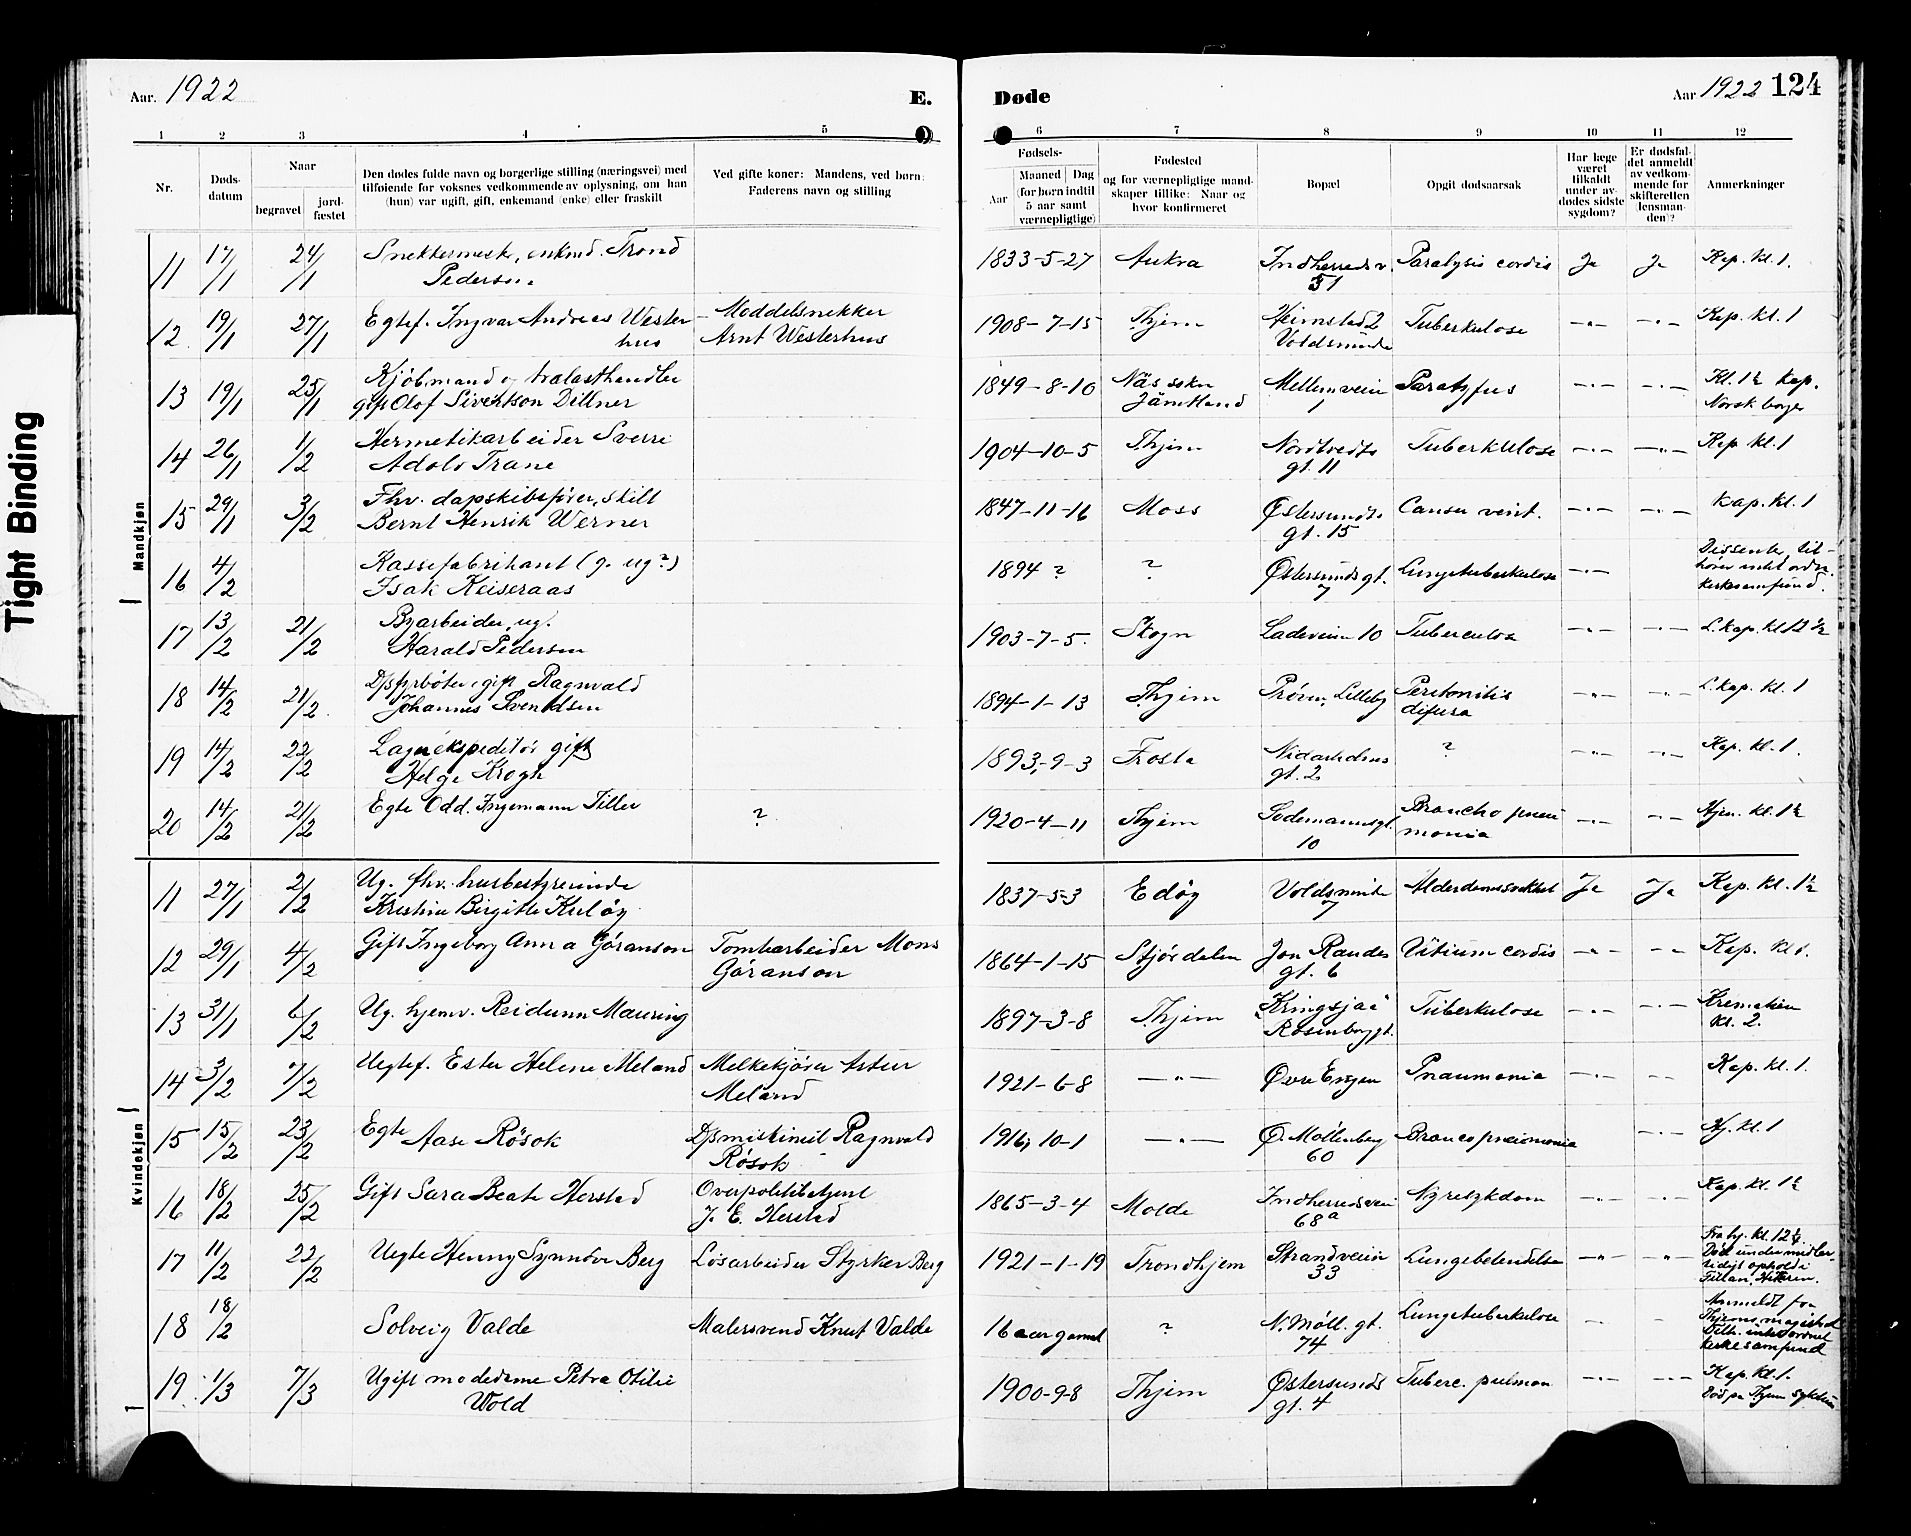 Tight Binding
Aar. 1922
E.
Døde
Aar 1922 124
1 2 3 4 5 6 7 8 9 10 11 12
Nr.
Døds-
datum
Naar
begravet
jord-
fæstet
Den dødes fulde navn og borgerlige stilling (næringsvei) med
tilføiende for voksnes vedkommende av oplysning, om han
(hun) var ugift, gift, enkemand (enke) eller fraskilt
Ved gifte koner: Mandens, ved børn:
Faderens navn og stilling
Fødsels-
Aar
Maaned | Dag
(for børn indtil
5 aar samt
værnepligtige)
Fødested
og for værnepligtige mand-
skaper tillike: Naar og
hvor konfirmeret
Bopæl
Opgit dødsaarsak
Har læge
været
tilkaldt
under av-
dødes sidste
sygdom?
Er dødsfal-
det anmeldt
av vedkom-
mende for
skifteretten
(lensman-
den)?
Anmerkninger
Mandkjøn
11 17/1 24/1 Snekkermester, enkmd. Trond
Pedersen
1833-5-27 Aukra Indherredsv.
51
Paralysis cordis Ja Ja Kap. kl. 1.
12 19/1 27/1 Egtef. Ingvar Andreas Wester
hus
Moddelsnekker
Arnt Westerhus
1908-7-15 Thjem Heimstad 2
Voldsminde
Tuberkulose -"- -"- Kap. kl. 1
13 19/1 25/1 Kjøbmand og trælasthandler
gift Olof Sivertson Dillner
1849-8-10 Näs sokn
Jämtland
Mellemveien
1
Paratyfus -"- -"- Kl. 1½ Kap.
Norsk borger
14 26/1 1/2 Hermetikarbeider Sverre
Adolv Trane
1904-10-5 Thjem Nordtvedts
gt. 11
Tuberkulose -"- -"- Kap kl. 1
15 29/1 3/2 Fhv. dapskibsfører, skilt
Bernt Henrik Werner
1847-11-16 Moss Østersunds
gt. 15
Cancer vent. -"- -"- Kap. kl. 1
16 4/2 Kassefabrikant (g. ug?)
Isak Keiseraas
1894 ? ? Østersundsgt.
7
Lungetuberkulose -"- Dissenter, til-
hører intet ordn.
kirkesamfund.
17 13/2 21/2 Byarbeider, ug.
Harald Pedersen
1903-7-5. Skogn Ladeveien 10 Tuberculose -"- -"- L. kap. kl 12 ½
18 14/2 21/2 Dpsfyrbøter, gift Ragnvald
Johannes Svendsen
1894-1-13 Thjem Prøven, Lilleby Peritonitis
difusa
-"- -"- L. kap. kl. 1
19 14/2 22/2 Lagerekspeditør gift
Helge Krogh
1893-9-3 Frosta Nidarholms
gt. 2
? -"- -"- Kap. kl. 1.
20 14/2 21/2 Egte Odd. Ingemann Tiller ?
1920-4-11 Thjem Lodemannsgt.
10
Broncho pneu
monia
-"- -"- Hjem. kl. 1½
Kvindekjøn
11 27/1 2/2 Ug. fhv. husbestyrerinde
Kristine Birgitte Kuløy
1837-5-3 Edøy Voldsminde
7
Alderdomssvakhet Ja Ja Kap. kl. 1½
12 29/1 4/2 Gift Ingeborg Anna Gøranson Tomtearbeider Mons
Gøranson
1864-1-15 Stjørdalen Jon Randes
gt. 6
Vitium cordis -"- -"- Kap. kl 1.
13 31/1 6/2 Ug. hjemv. Reidunn Mauring
1897-3-8 Thjem "Kringsjaa"
Rosenborggt.
Tuberkulose -"- -"- Kremation
kl. 2.
14 3/2 7/2 Uegtef. Ester Helene Meland Melkekjører
Meland
1921-6-8 -"- Øvre Engen Pnaumonia -"- -- Kap. kl. 1.
15 15/2 23/2 Egte Aase Røsok Dpsmaskinist Ragnvald
Røsok
1916, 10-1 -"- Ø. Møllenberg
60
Broncopneumonia -"- Hj. kl. 1
16 18/2 25/2 Gift Sara Beate Herstad Overpolitibetjent
J. E. Herstad
1865-3-4 Molde Indherredsveien
68a
Nyresykdom -"- -"- Kap. kl. 1½
17 11/2 22/2 Uegte Henny Synnøve Berg Løsarbeider Styrker Berg
1921-1-19 Trondhjem Strandveien
33
Lungebetendelse -"- -"- Fra hj. kl. 12¼.
Død under midler-
tidigt ophold i
Fillan, Hitteren.
18 18/2 Solveig Valde Malersvend Knut Valde
16 aar gammel ? N. Møll. gt.
74
Lungetuberkulose - - Anmeldt fra
Thjems magistrat
Tilh. intet ordnet
kirkesamfund
19 1/3 7/3 Ugift moderne Petra Otilie
Wold
1900-9-8 Thjem Østersunds
gt. 4
Tuberc. pulmon -"- -"- Kap. kl. 1.
Død på Thjem sykehus